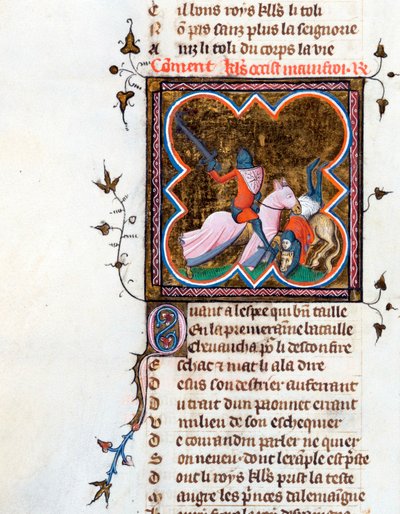 E il lons roys kl̃'s li toli
N õ pas sanz plus la seignorie
A inz li toli du corps la vie
Cõment kl̃'s occist mainfroi. R
Q uant a lespee qui bñ taille
En la premeraĩne bataille
Cheuaucha pᵒ li desconfire
E schac & mat li ala dire
D esus son destrier auferrant
D u trait dun paonnet errant
U milieu de son eschequier
D e courandin parler ne quier
S on neueu dont lexãple est p̃ste
D ont li roys kl̃'s prist la teste
M augre les p̃nces dalemaigne